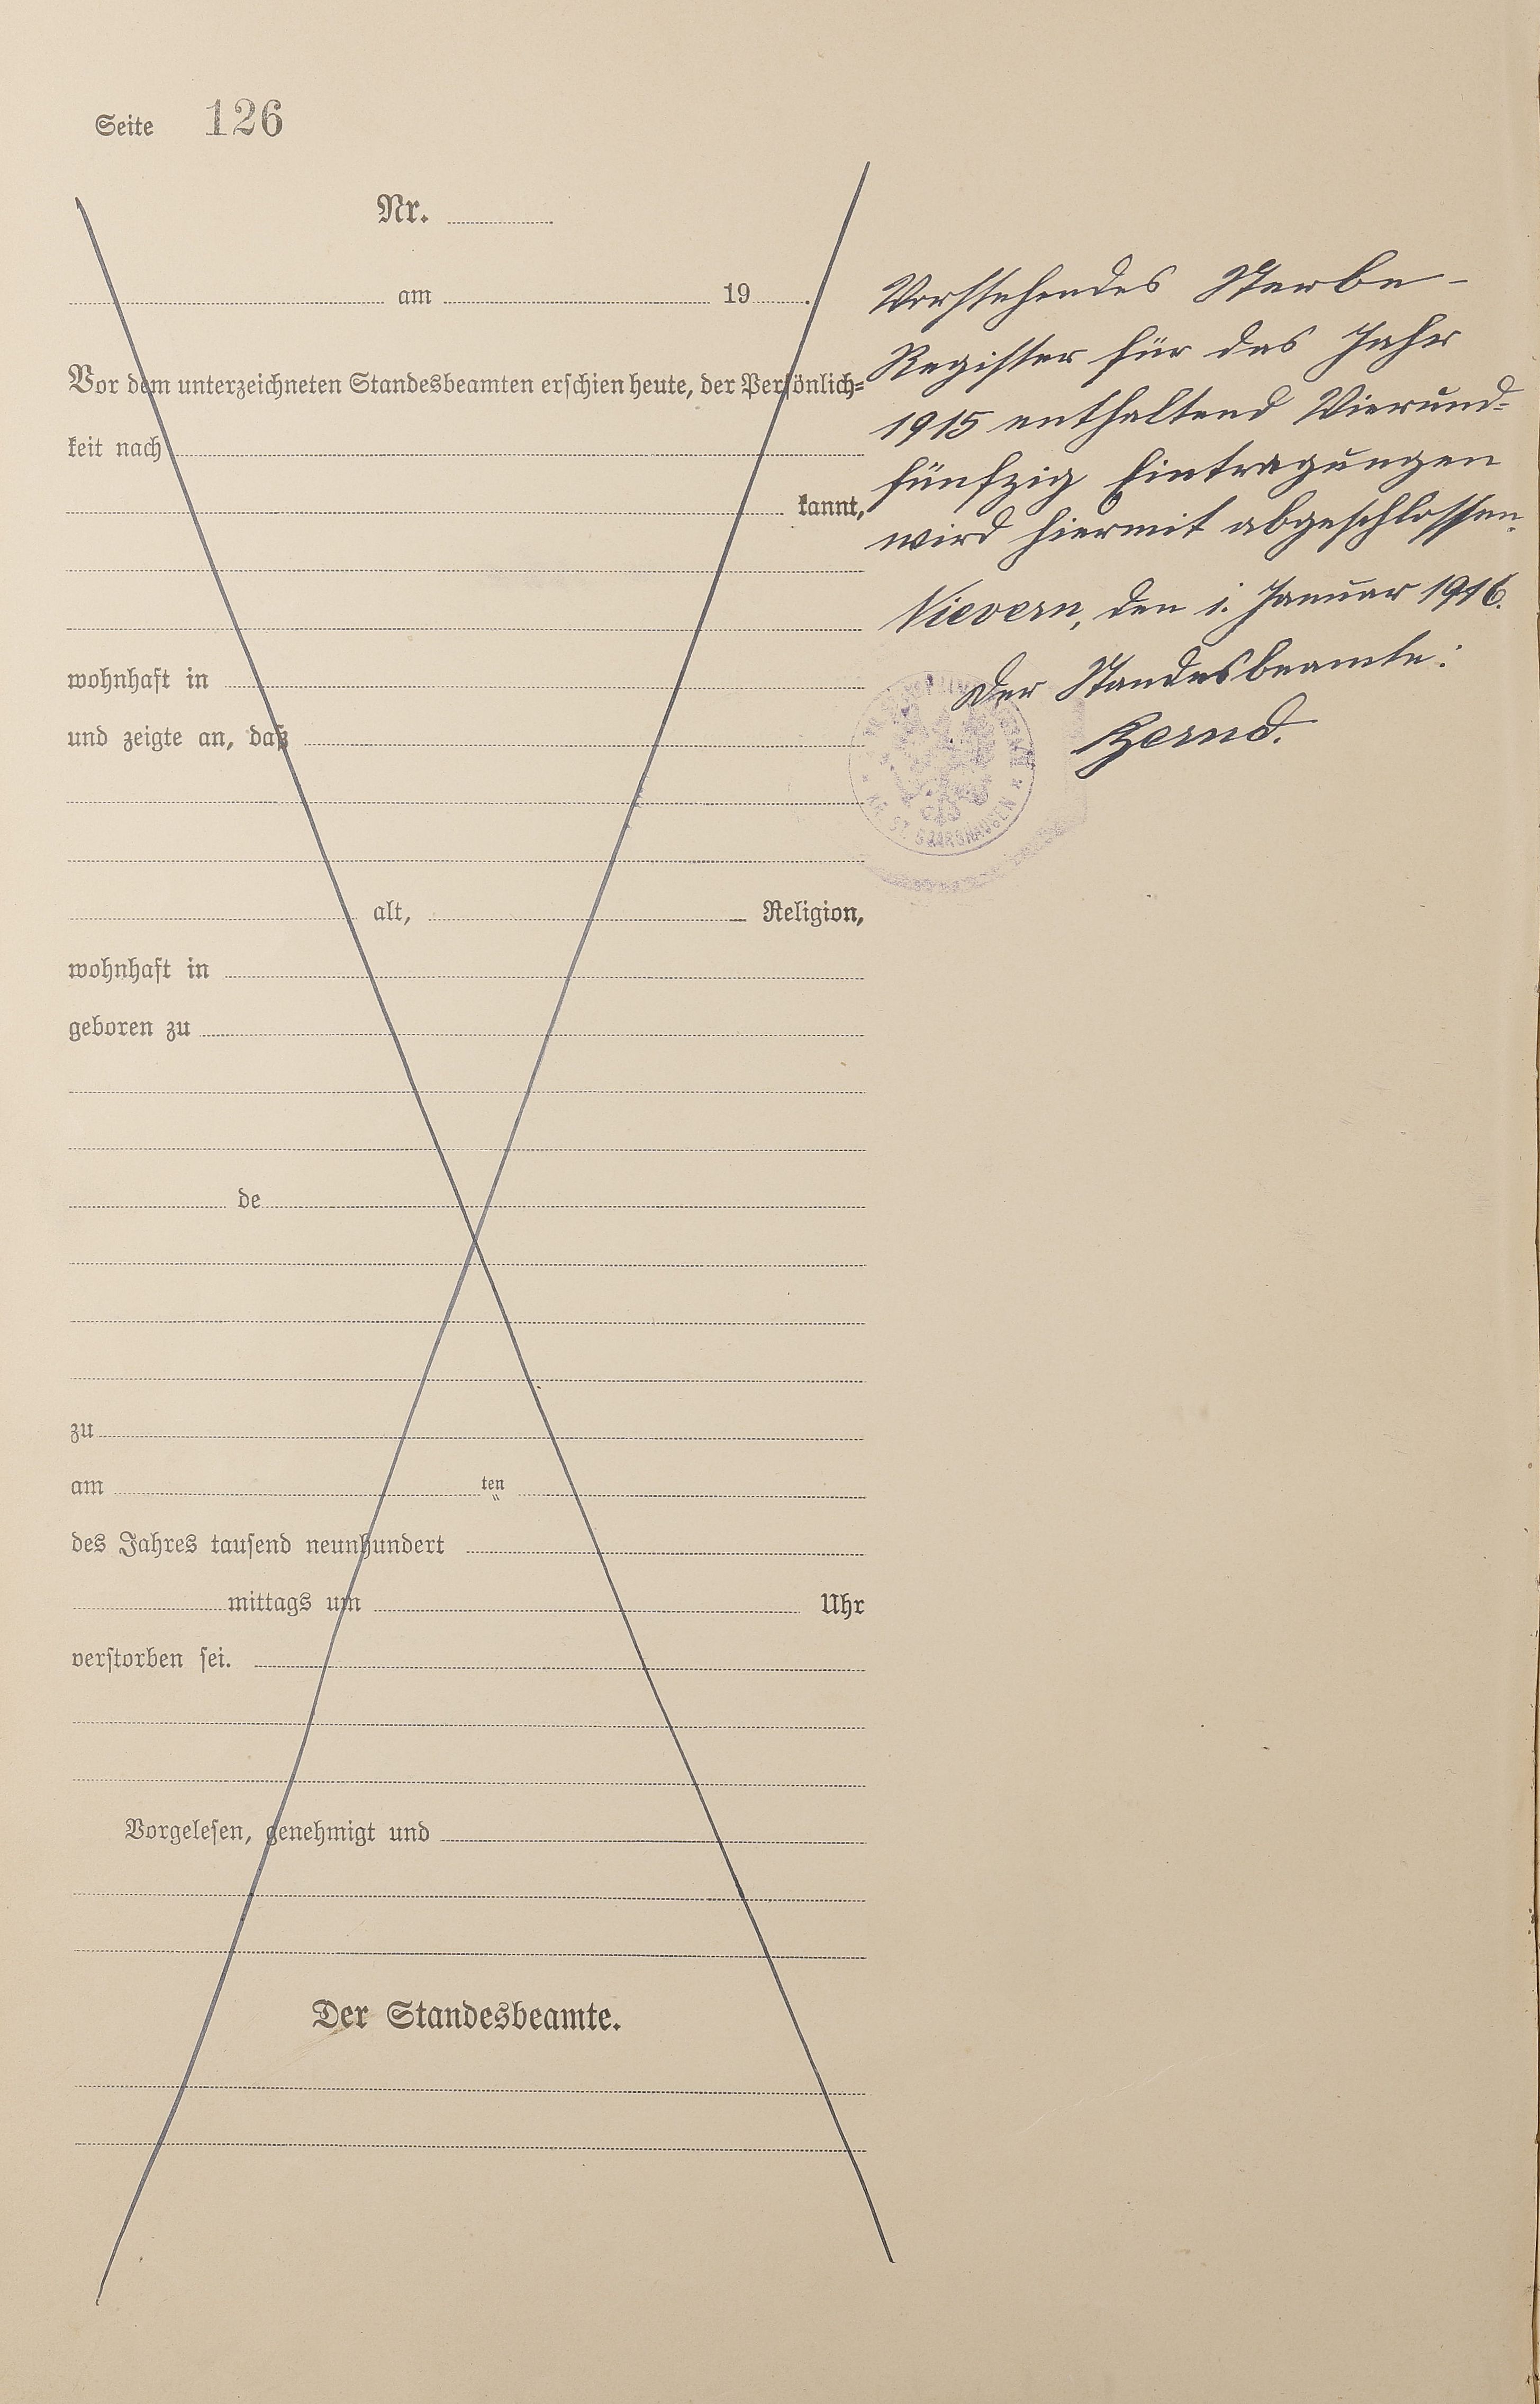 Seite 126
Nr.
am 19 .
Vor dem unterzeichneten Standesbeamten erschien heute, der Persönlich=
keit nach
kannt,
wohnhaft in
und zeigte an, daß
alt, Religion,
wohnhaft in
geboren zu
de
zu
am ten
des Jahres tausend neunhundert
mittags um Uhr
verstorben sei.
Vorgelesen, genehmigt und
Der Standesbeamte.
Vorstehendes Sterbe-
Register für das Jahr
1915 enthaltend Vierund=
fünfzig Eintragungen
wird hiermit abgeschlossen.
Nievern, den 1. Januar 1916.
Der Standesbeamte:
Bernd.
KR. ST. GOARSHAUSEN